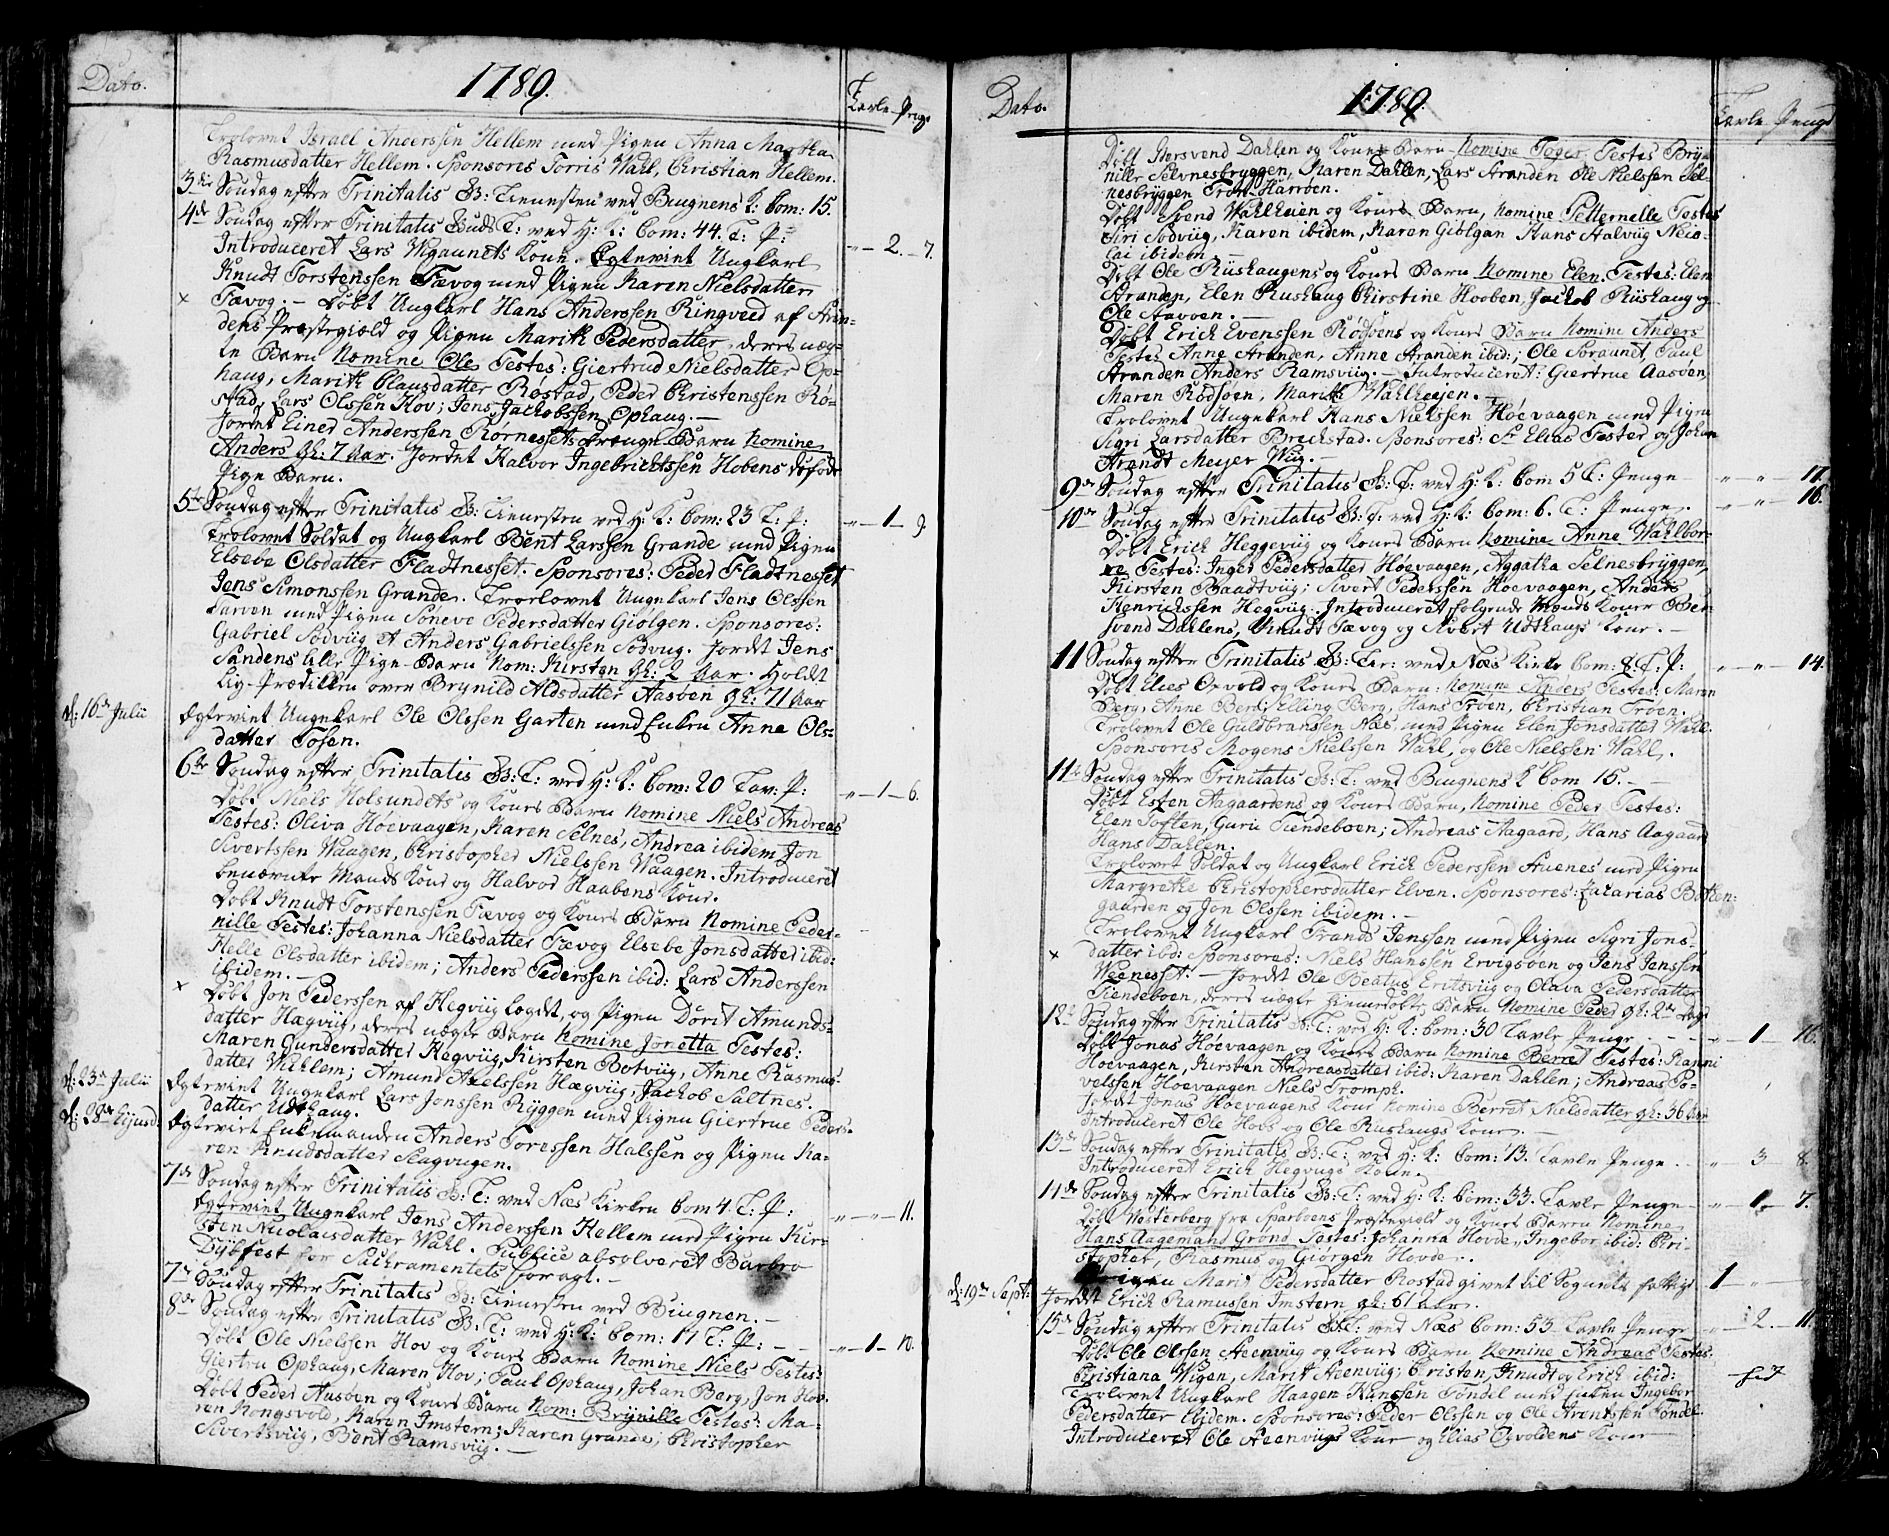 Dato.
1789.
Tavle Peng.
Trolovet Israel Anderssen Hellem med Pigen Anna Martha
Rasmusdatter Hellem. Sponsores Torris Wahl, Christian Hellem.
3die Søndag efter Trinitatis B: Tienesten ved Bugnens K: Com: 15.
4de Søndag efter Trinitatis Guds T: ved H: K: Com: 44. T: P: " - 2. - 7.
Introduceret Lars Kone. Egteviet Ungkarl
Knudt Torstenssen Tævog med Pigen Karen Nielsdatter
x Tævog. - Døbt Ungkarl Hans Anderssen Ringveed af
dens Præstegiæld og Pigen Marith Pedersdatter, deres uæg-
te Barn Nomine Ole Testes: Giertrud Nielsdatter Op-
haug, Marith Clausdatter Røstad, Peder Christenssen Rø-
stad, Lars Olssen Hov; Jens Jachobssen Ophaug. -
Jordet Einer Anderssen Rørnessets Drenge Barn Nomine
Anders gl: 7 Aar. Jordet Halvor Ingebrichtssen Hobens døfødt
Pige Barn.
5te Søndag efter Trinitatis B: Tienesten ved H: K: Com: 23 T: P: " - 1 - 9.
Trolovet Soldat og Ungkarl Bent Larssen Grande med Pigen
Elsebe Olsdatter Fladtnesset. Sponsores: Peder Fladtnesset
Jens Simonssen Grande. Trolovet Ungekarl Jens Olssen
Larven med Pigen Søneve Pedersdatter Giølgen. Sponsores:
Gabriel Sodviig et Anders Gabrielssen Sodvug. Jordet Jens
Sandens lille Pige-Barn Nom: Kirsten gl: 2 Aar. Holdt
Lig-Prædiken over Brynild Aldsdatter Aasøen gl: 71 Aar
d: 16de Julii Egteviet Ungekarl Ole Olssen Garten med Enken Anne Ols-
datter Tosen.
6te Søndag efter Trinitatis B: T: ved H: K: Com: 20 Tav: P: " - 1 - 6.
Døbt Niels Holsundets og Kones Barn Nomine Niels Andreas
Testes: Oliva Høevaagen, Karen Selnes, Andrea ibidem Jon
Sivertssen Waagen, Christopher Nielssen Waagen. Introduceret
benævnte Mands Kone og Halvor Haabens Kone.
Døbt Knudt Torstenssen Tævog og Kones Barn Nomine Peder-
nille Testes: Johanna Nielsdatter Tævog Elsebe Jonsdatter ibid:
Helle Olsdatter ibidem; Anders Pederssen ibid: Lars Anderssen
ibidem. -
x Døbt Jon Pederssen af Hegviig Lægdet, og Pigen Dorit Amunds-
datter Hægviig, deres uægte Barn Nomine Jonetta Testes:
Maren Gundersdatter Hegviig, Kirsten Botviig, Anne Rasmus-
datter Wahlem; Amund Axelssen Hægviig, Jachob Saltnes.
d: 23de Julii Egteviet Ungekarl Lars Jonssen Ryggen med Pigen Giertrue Peders-
datter Udthaug.
d: 28de Ejusd: Egteviet Enkemanden Anders Toressen Halssen og Pigen Ka-
ren Knudsdatter Slagvugen.
7de Søndag efter Trinitatis B: T: ved Næs Kirken Com 4. T: P: " - " - 11.
Egteviet Ungekarl Jens Anderssen Hellem med Pigen Kir-
sten Nicolaisdatter Wahl. Publice absolveret Barbro
Dybfest for Sachramentets foragt. -
7de Søndag efter Trinitatis B: Tienesten ved Bugnen. -
8de Søndag efter Trinitatis B: T: ved H: K: Com: 17 T: P: - - " - 1 - 10.
Døbt Ole Nielssen Hov og Kones Barn Nomine Niels Testes:
Giertru Ophaug, Maren Hov; Paul Ophaug, Johan Berg, Jon Hov.
Døbt Peder Aasøen og Kones Barn Nom: Brynille Testes: Ma-
ren Kongsvold, Karen Imstern; Karen Grande; Christopher
Sivertsviig, Bent Ramsviig. -
Dato.
1789.
Tavle Penge
Døbt Borsvend Dahlen og Kones Barn Nomine Toger, Testes Bry-
nille Selvnesbryggen, Karen Dahlen, Lars Aranden Ole Nielssen Sel-
nesbryggen Tron Harrøen.
Døbt Svend Wahlheien og Kones Barn, Nomine Petternelle Testes
Siri Sodviig, Karen ibidem, Karen Giølgan Hans Halviig Nico-
lai ibidem.
Døbt Ole Riishaugens og Kones Barn Nomine Elen. Testes: Elen
Aranden, Elen Rushaug Kirstine Hooben, Jachob Riishaug og
Ole Aavoen. -
Døbt Erich Evenssen Rødsøens og Kones Barn Nomine Anders
Testes Anne Aranden, Anne Aranden ibid:; Ole Soraunet, Paul
Aranden Anders Ramsviig. - Introduceret: Giertrue Aasøen,
Maren Rødsøen, Marith Wahlheien. -
Trolovet Ungekarl Hans Nielssen Høevaagen med Pigen
Sigri Larsdatter Brechstad. Sponsores: Sr Elias Tester og Johan
Arandt Meyer Wug. -
9de Søndag efter Trinitatis B: T: ved H: K: Com 5 T: Penge " - " - 17.
10de Søndag efter Trinitatis B: T: ved H: K: Com: 6. T: Penge. " - " - 16.
Døbt Erich Heggeviig og Kones Barn Nomine Anne Wahlbor-
re Testes: Inger Pedersdatter Høevaagen, Aggatha Selnesbryggen,
Kirsten Baadtviig; Sivert Pederssen Høevaagen, Anders
Henrichssen Hegviig. Introduceret følgende Mands Koner Ber-
svend Dahlens, Knudt Tævog og Sivert Udthaugs Kone. -
11 Søndag efter Trinitatis B: Tie: ved Næs Kirke Com: 8 T: P: " - " - 14.
Døbt Elies Opvold og Kones Barn: Nomine Anders Testes: Maren
Berg, Anne Berg; Elling Berg, Hans Trøen, Christian Trøen.
Trolovet Ole Guldbranssen Næs, med Pigen Elen Jonsdatter Wahl.
Sponsoris Mogens Nielssen Wahl, og Ole Nielssen Wahl.
11te Søndag efter Trinitatis B: T: ved Bugnens K Com 15. - -
Døbt Esten Aagaardens og Kones Barn, Nomine Peder Testes:
Elen Toften, Guru Tiendeboen; Andreas Aagaard, Hans Aagaard
Hans Dahlen.
Trolovet Soldat og Ungkarl Erich Pederssen Auenes med Pigen
Margrethe Christophersdatter Elven. Sponsores: Zacharias Botten-
gaarden og Jon Olssen ibidem. -
Trolovet Ungkarl Frands Jenssen med Pigen Sigri Jons-
x datter ibid: Sponsores: Niels Hanssen Ervigsøen og Jens Jenssen
Weenesset. - Jordet Ole Beatus Eritsviig og Olava Pedersdatter
Tiendeboen, deres uægte hiemedøbte Barn Nomine Peder gl: 2de Dage
12te Søndag efter Trinitatis B: T: ved H: K: Com: 30 Tavle Penge - - " - 1 - 16.
Døbt Jonas Høevaagen og Kones Barn Nomine Berret Testes: Ranni
Hoevaagen, Kirsten Andreasdatter ibid: Karen Dahlen; Andreas Po-
velssen Hoevaagen Niels Tromph.
Jordet Jonas Hoevaagens Kone Nomine Berret Nielsdatter gl: 36 Aar
Introduceret Ole Hobs og Ole Rushaugs Koner. -
13de Søndag efter Trinitatis B: T: ved H: K: Com: 13. Tavle Penge. " - 3 - 8.
Introduceret Erich Hegvugs Kone.
14de Søndag efter Trinitatis B: T: ved H: K: Com: 33. Tavle Penge " - 1. - 7.
Døbt Westerberg fra Sparboens Præstegiæld og Kones Barn Nomine
Hans Aagemand Grønd Testes: Johanna Hovde, Ingebor ibid: Chri-
stopher, Rasmus og Giørgen Hovde. -
Pigen Marit Pedersdatter Rostad givet til Sognets fattige 1 " "
d: 19de Sept: Jordet Erich Ramussen Imstern gl: 61 Aar.
15de Søndag efter Trinitatis B: T: ved Næs Com: 53. Tavle Penge " - 2. - 11.
Døbt Ole Olssen Aeenviig og Kones Barn Nomine Andreas Testes:
Christiana Wigen, Marit Aeenviig; Cristen, Knudt og Erich ibid:
Trolovet Ungkarl Haagen Kinssen Føndel med Enken Ingebor
Pedersdatter ibidem. Sponsores: Peder Olssen og Ole Arentssen Føndel.
Introduceret Ole Aeenviigs Kone og Elias Opvoldens Kone